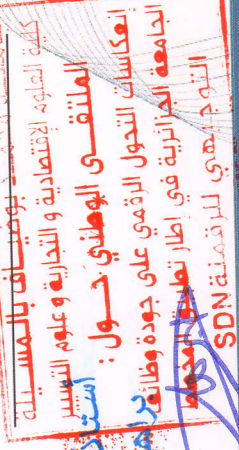 بوضياف بالمسيلة
كلية العلوم الاقتصادية و التجارية وعلوم التسيير
الملتقى الوطني حول :
إنعكاسات التحول الرقمي على جودة وظائف
الجامعة الجزائرية في إطار تطبيق المخطط
التوجيهي للرقمنة SDN